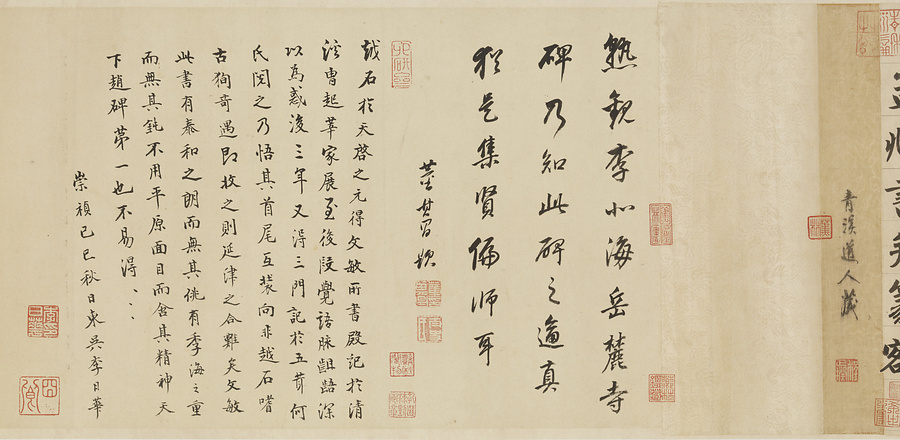 青溪道人藏
熟觀李北海岳麓寺
碑乃知此碑之逼真
猶是集賢偏師耳
董其昌題
越石於天啓之元得文敏所書殿記於清
溪曹起莘家展至後段覺語脉齟齬深
以為惑後三年又得三門記於五茸何
氏閱之乃悟其首尾互裝向非越石嗜
古狥奇遇即收之則延津之合難矣文敏
此書有泰和之朗而無其佻有季海之重
而無其鈍不用平原面目而含其精神天
下趙碑第一也不易得、、、
崇禎己巳秋日東吳李日華